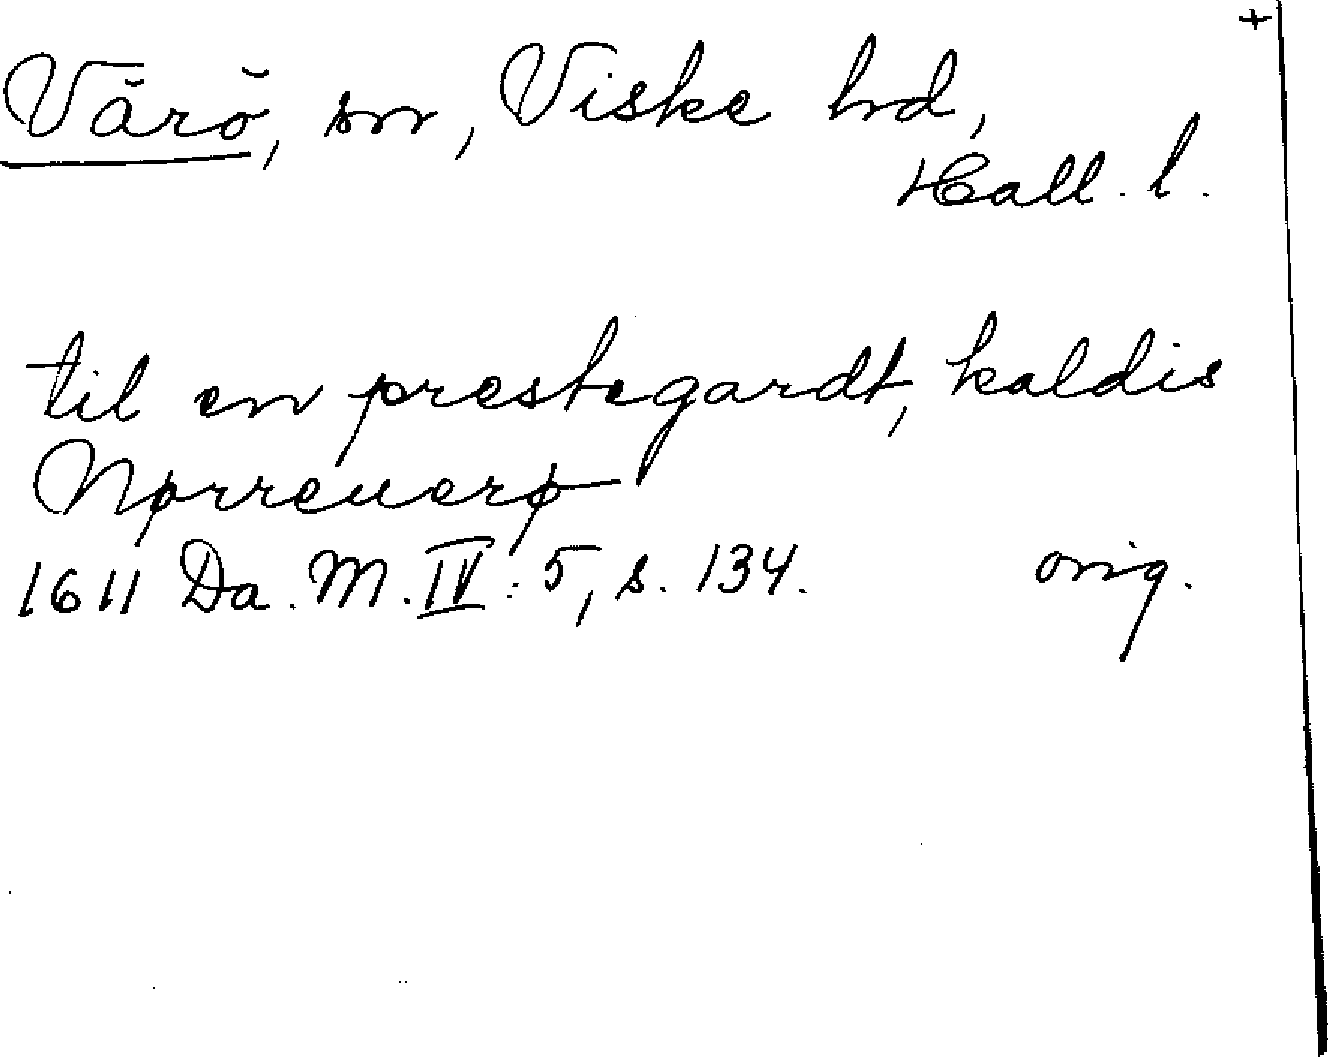 +
Värö, sn, Viske hd,
Hall. l.
til en prestegardt, kaldis
Nørreuerø
1611 Da. M. IV: 5, s. 134. orig.